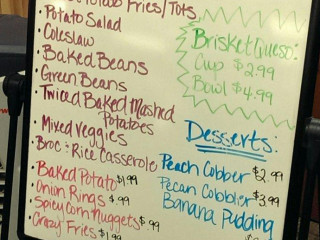 Fries/Tots
• Potato Salad
• Coleslaw
• Baked Beans
• Green Beans
• Twiced Baked Mashed
Potatoes
• Mixed Veggies
• Broc & Rice Casserole
• Baked Potato $1.99
• Onion Rings $.99
• Spicy Corn Nuggets $.99
• Crazy Fries $1.99
Brisket Queso:
Cup $2.99
Bowl $4.99
Desserts:
Peach Cobber $2.99
Pecan Cobbler $3.99
Banana Pudding